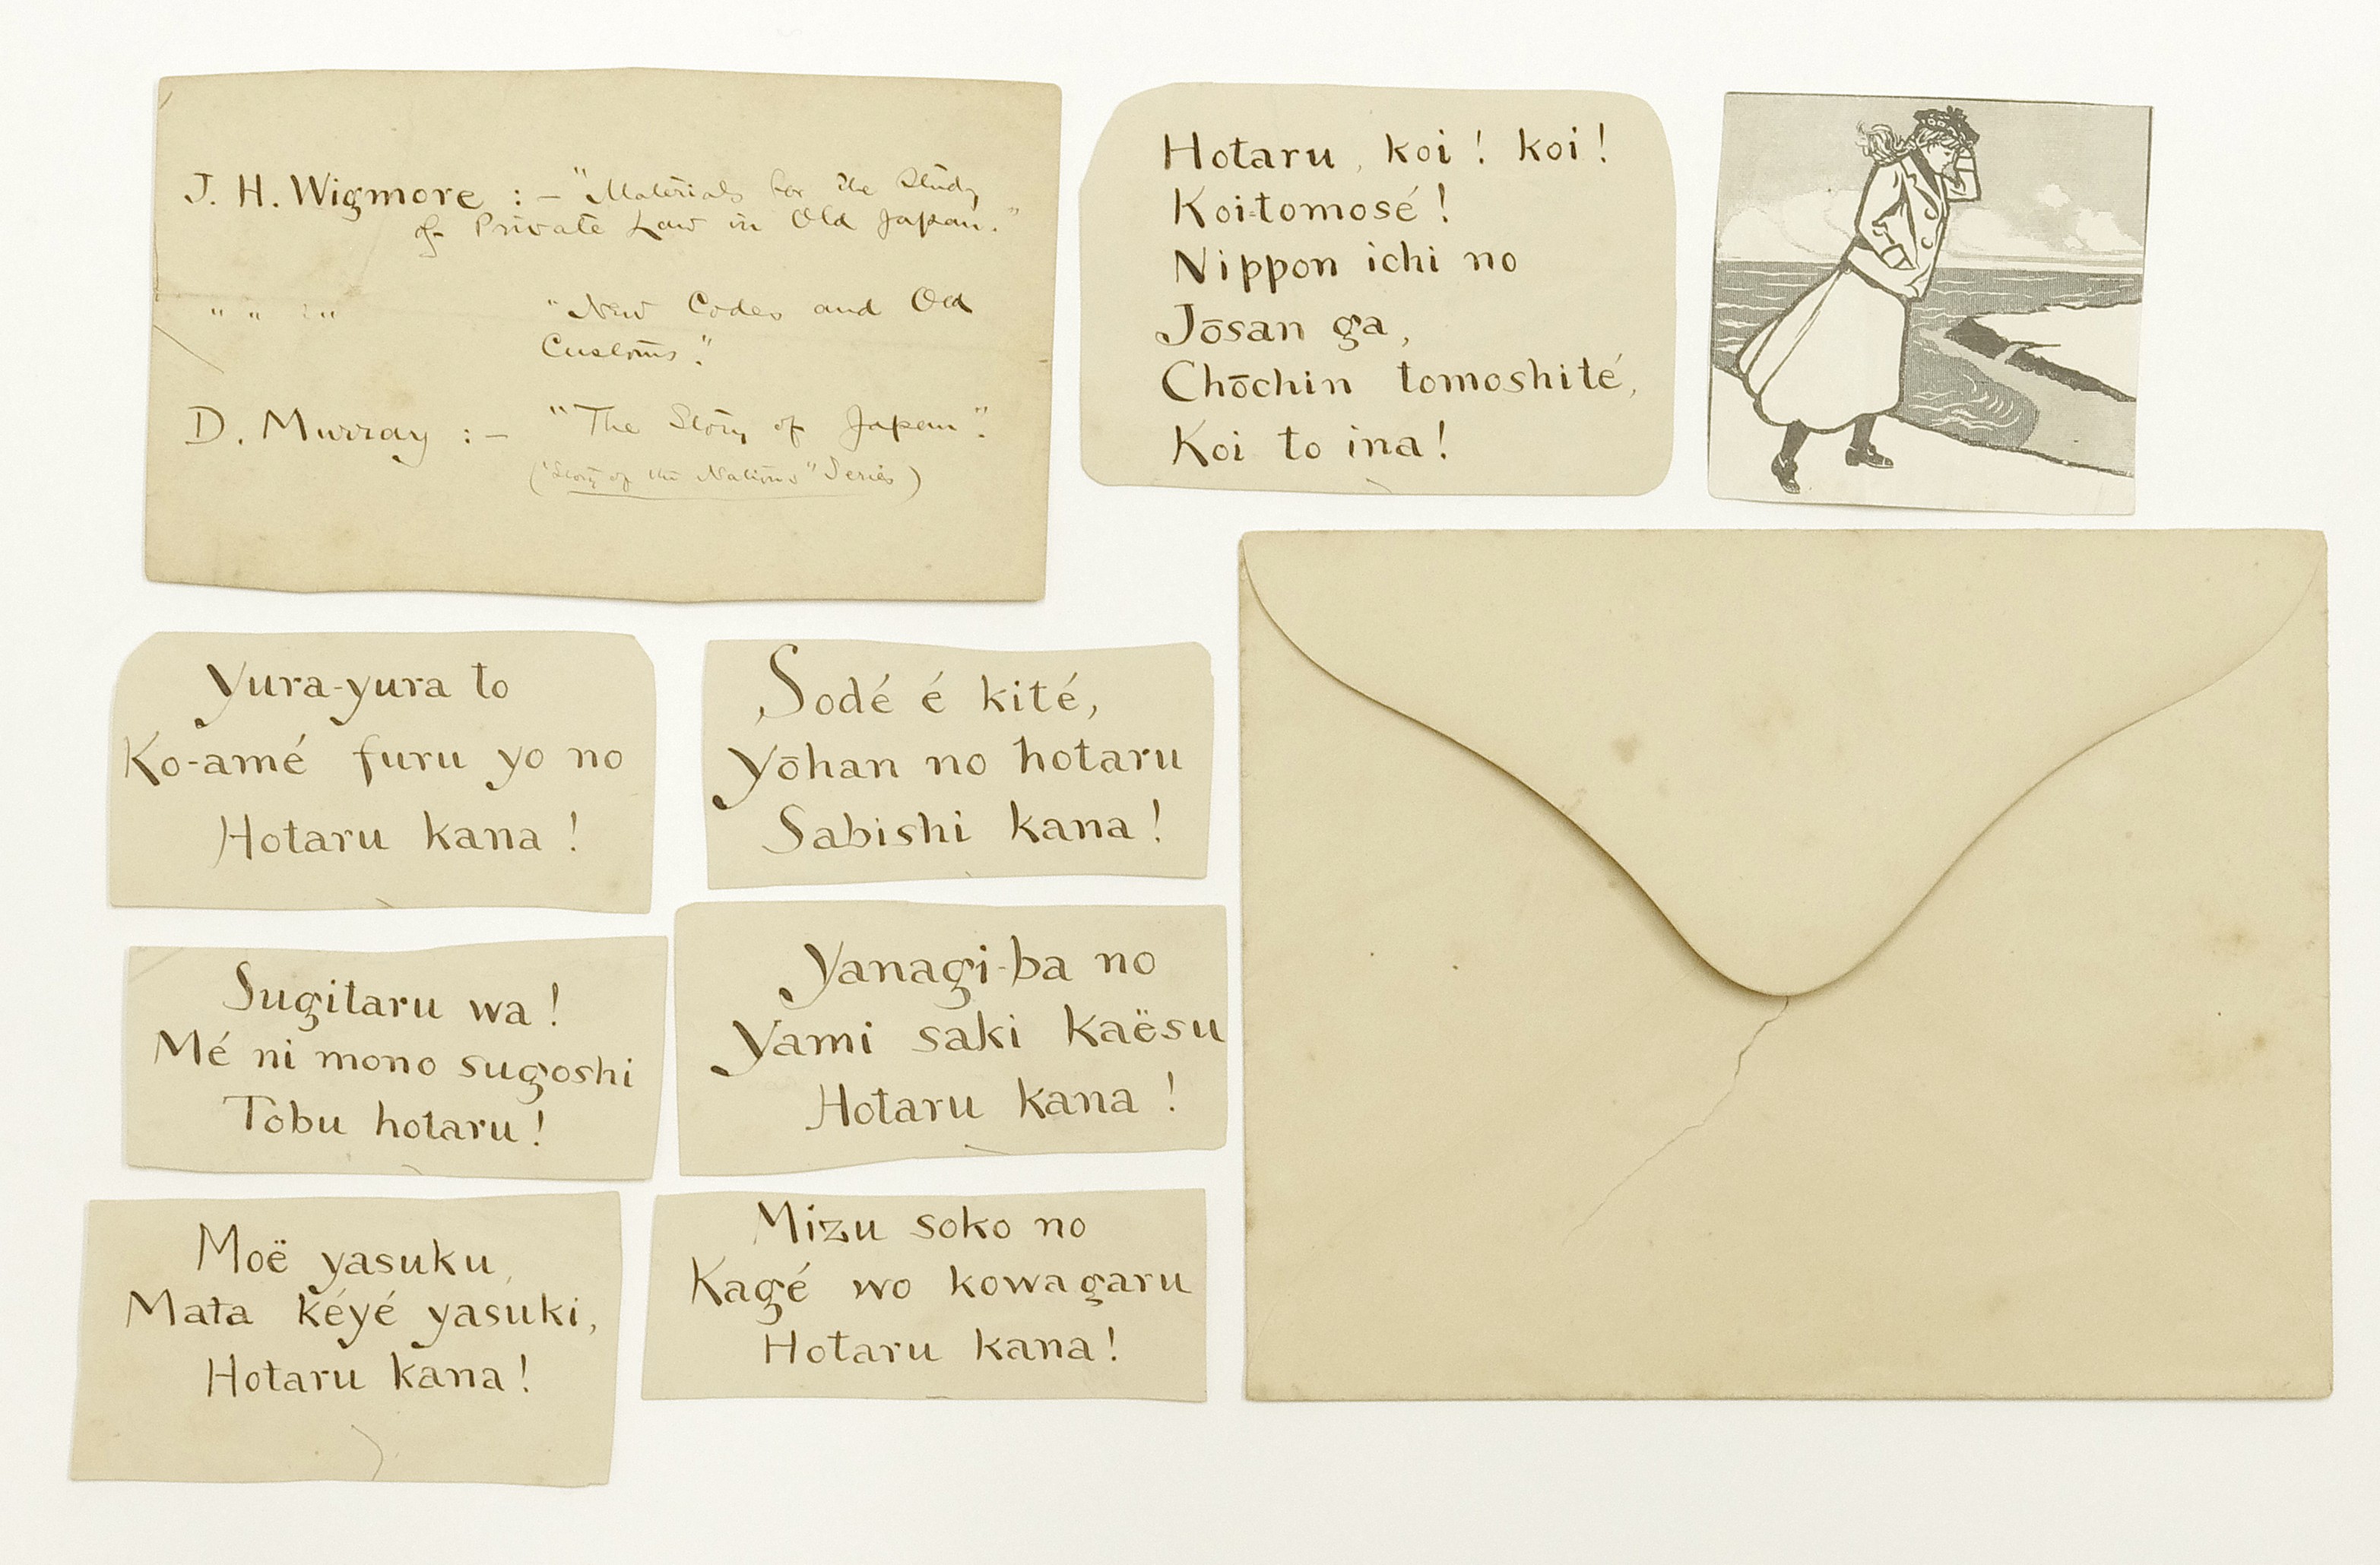 J. H. Wigmore : — "Materials for the Study
of Private Law in Old Japan."
" " " "New Codes and Old
Customs".
D. Murray : — "The Story of Japan".
("Story of the Nations" Series)
Hotaru, koi! koi!
Koi-tomosé!
Nippon ichi no
Jōsan ga,
Chōchin tomoshité,
Koi to ina!
Yura-yura to
Ko-amé furu yo no
Hotaru kana!
Sodé é kité,
Yōhan no hotaru
Sabishi kana!
Sugitaru wa!
Mé ni mono sugoshi
Tobu hotaru!
Yanagi-ba no
Yami saki kaësu
Hotaru kana!
Moë yasuku,
Mata kéyé yasuki,
Hotaru kana!
Mizu soko no
Kagé wo kowagaru
Hotaru kana!